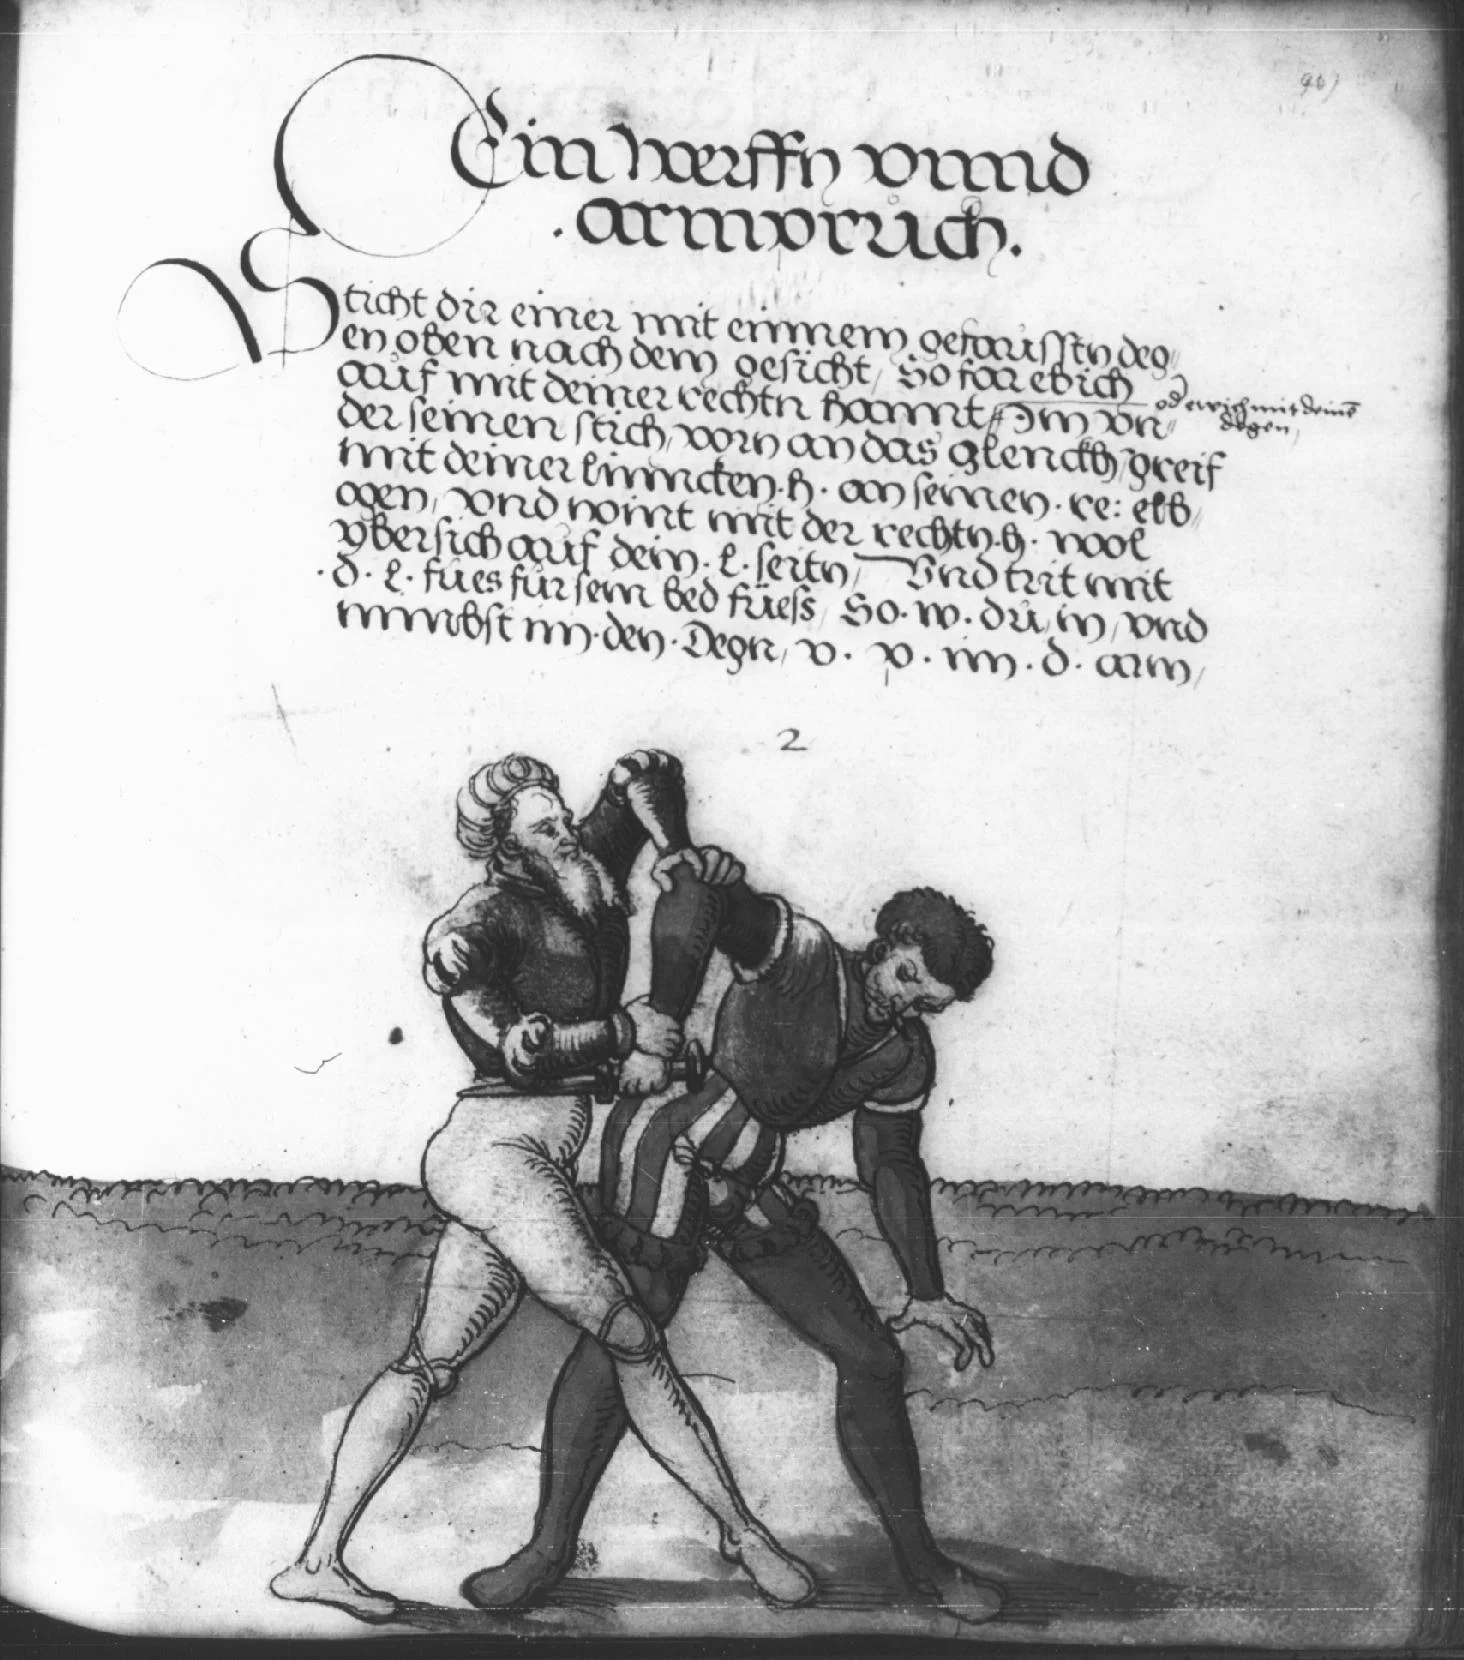 Ein werffn vnnd
. armpruch.
Sticht dir einer mit einnem gefausstn deg„
en oben nach dem gesicht, So far ebich
auf mit deiner rechtn hannt, Im vn„
od ewich mit deinē
degen,
der seinen stich, vorn an das glenckh, greif
mit deiner linncken. h. an seinen. re: elb„
ogen, vnd wint mit der rechtn. h. wol
ybersich auf dein. l. seitn, Vnd trit mit
. d. l. fues für sein bed füess, So. w. du in, vnd
nimbst im. den. Degn, v. p. im. d. arm,
2